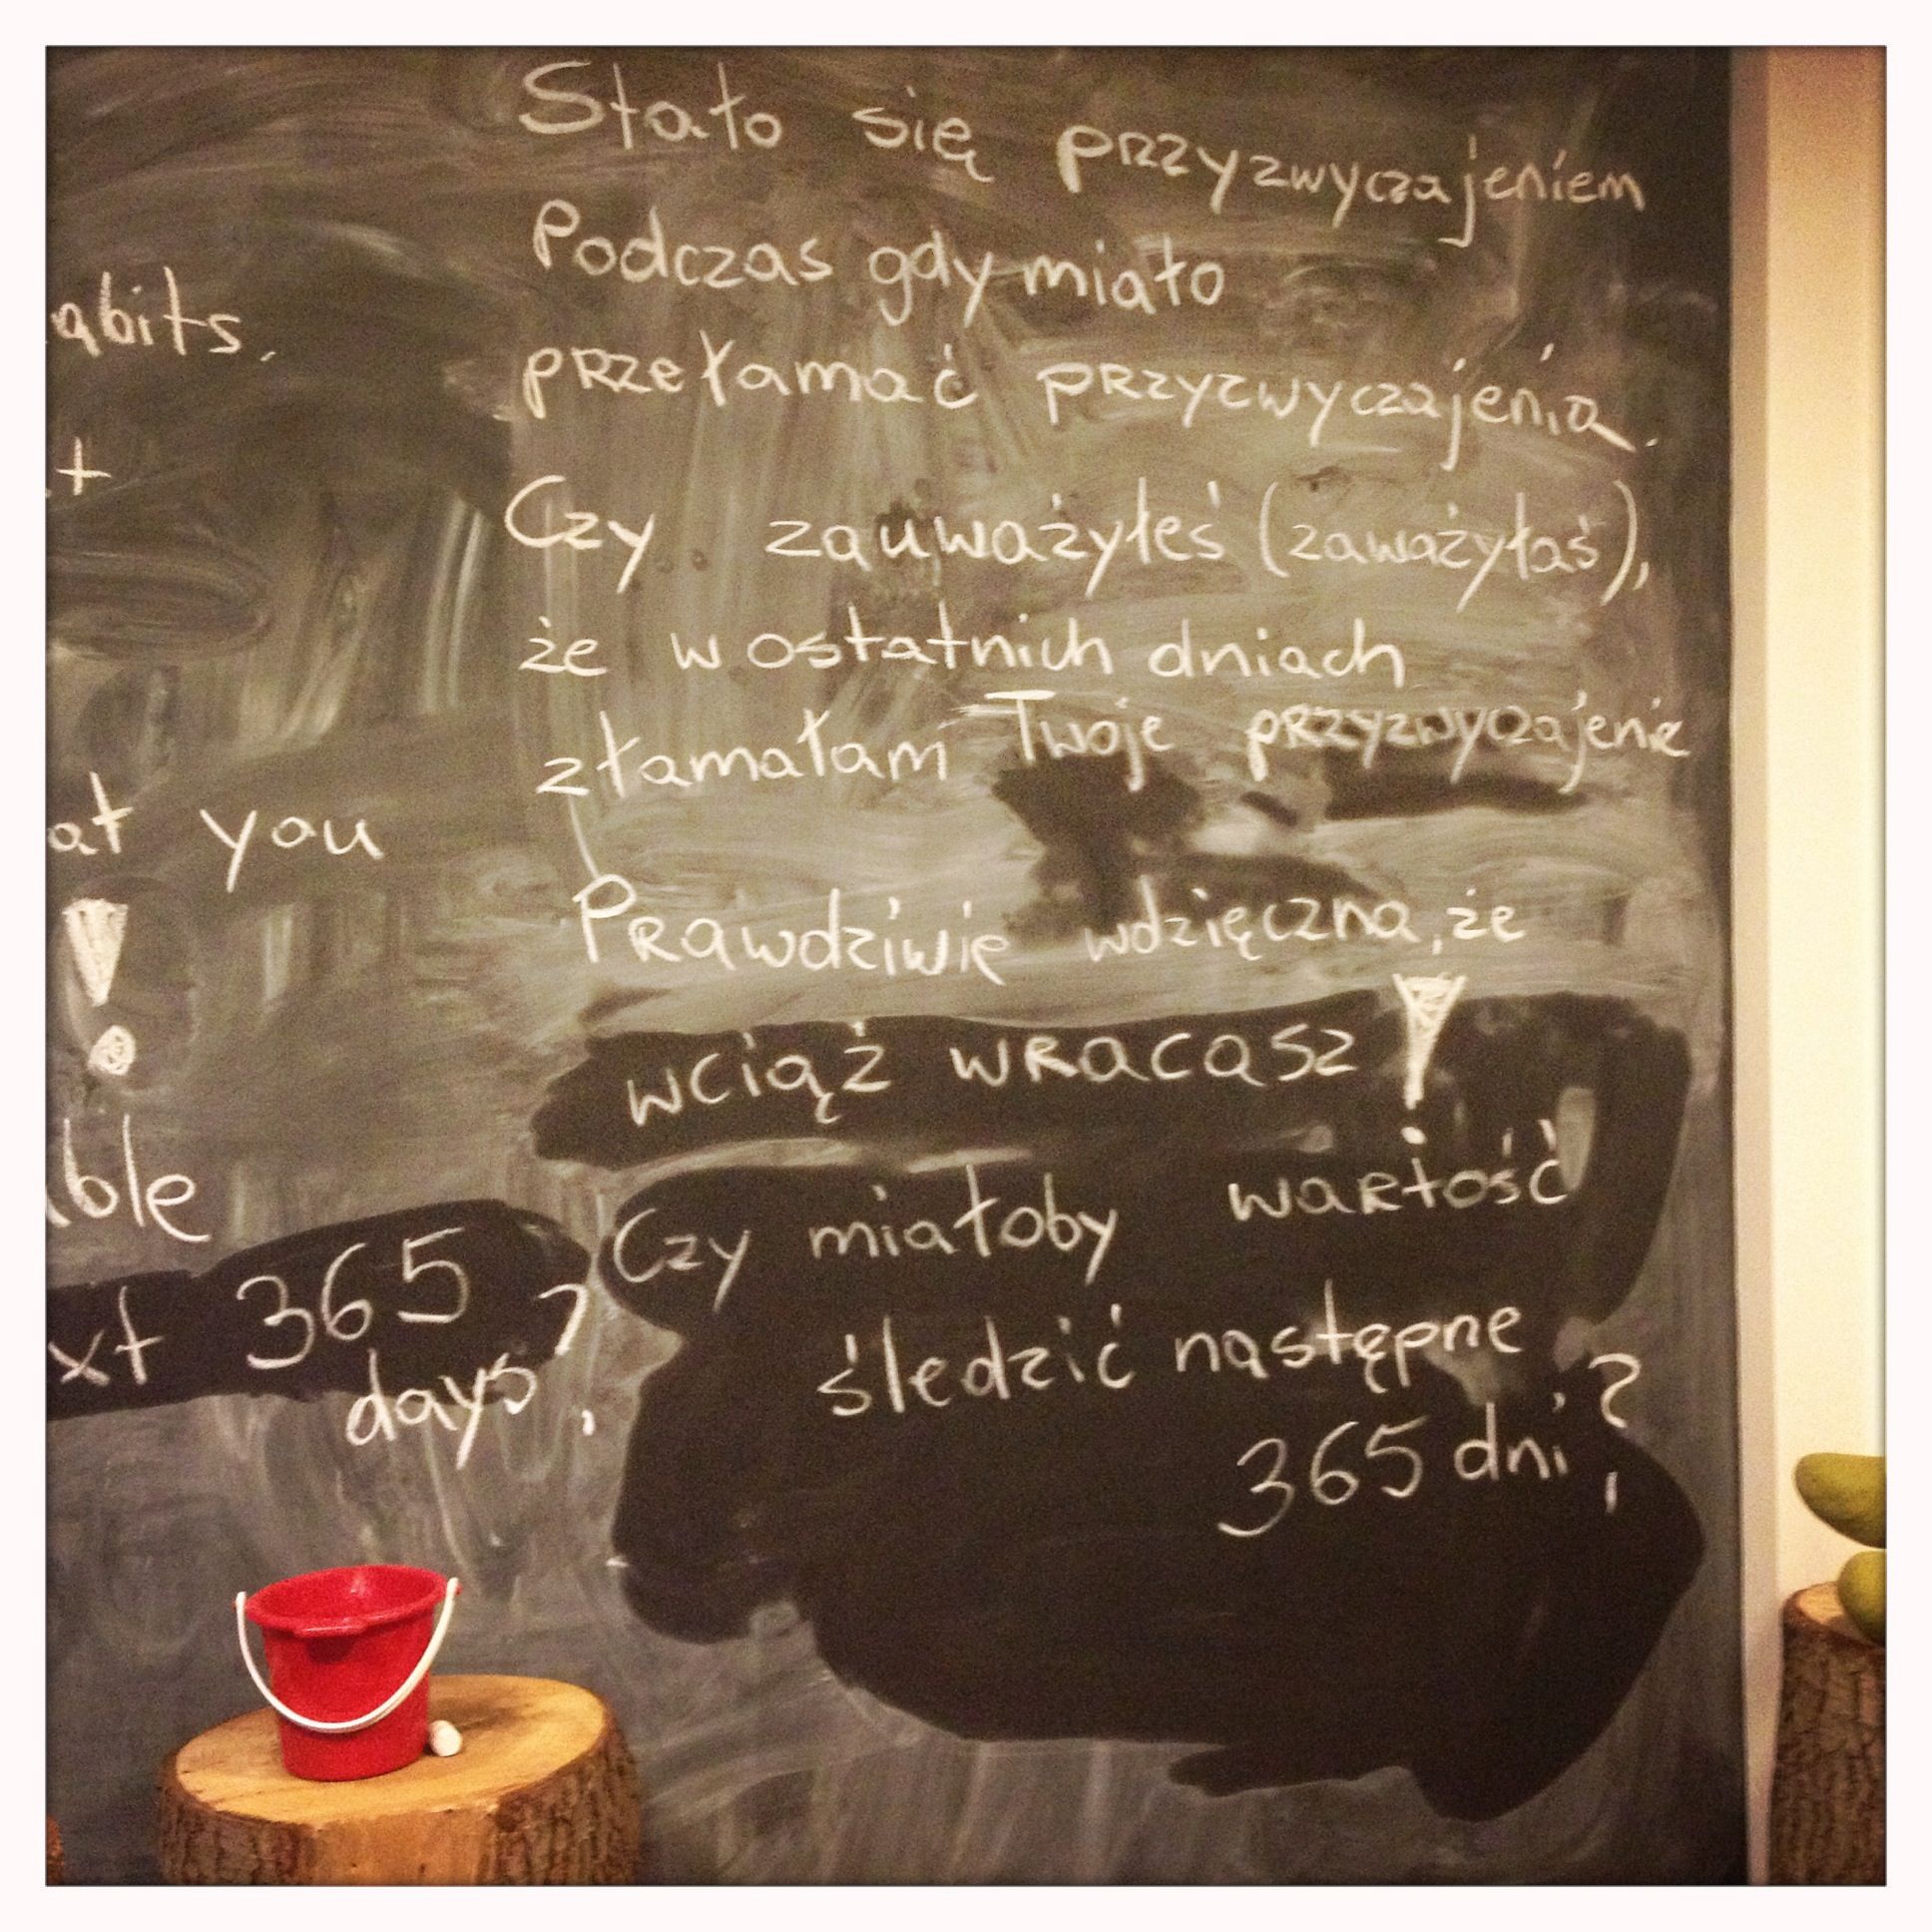 abits.
Stało się przyzwyczajeniem
Podczas gdy miało
przełamać przyzwyczajenia.
Czy zauważyłeś (zaważyłaś),
że w ostatnich dniach
złamałam Twoje przyzwyczajenie
at you
!
Prawdziwie wdzięczna, że
wciąż wracasz!
ble
Czy miałoby wartość
śledzić następne
365 dni?
xt 365
days?